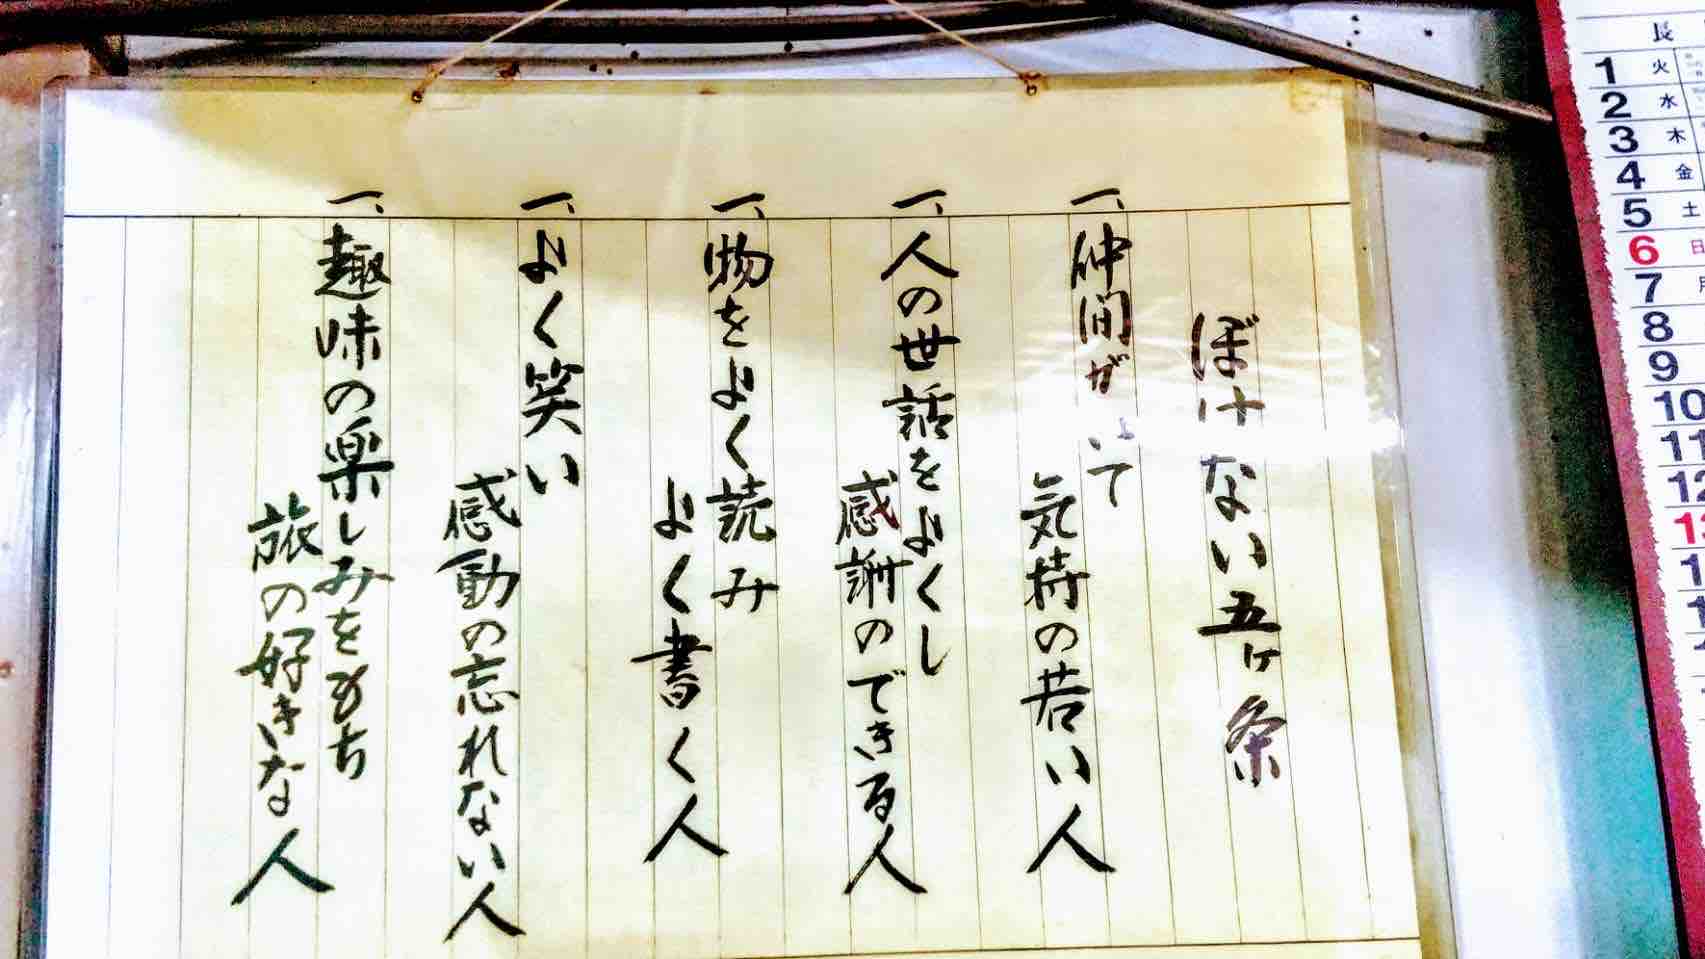 ぼけない五ヶ条
一、仲間がいて
気持の若い人
一、人の世話をよくし
感謝のできる人
一、物をよく読み
よく書く人
一、よく笑い
感動の忘れない人
一、趣味の楽しみをもち
旅の好きな人
長
1 火
2 水
3 木
4 金
5 土
6 日
7 月
8
9
10
11
12
13